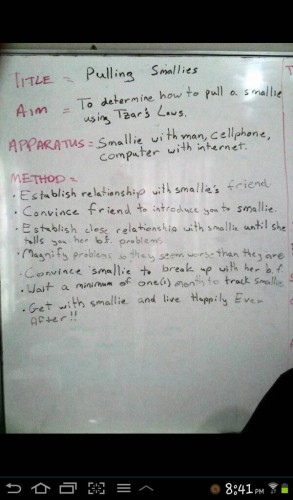 TITLE = Pulling Smallies
AIM = To determine how to pull a smallie
using Tzar's Laws.
APPARATUS = Smallie with man, cellphone,
computer with internet.
METHOD =
• Establish relationship with smallie's friend.
• Convince friend to introduce you to smallie.
• Establish close relationship with smallie until she
tells you her b.f. problems.
• Magnify problems so they seem worse than they are
• Convince smallie to break up with her b.f
• Wait a minimum of one(1) month to track smallie
• Get with smallie and live Happily Ever
After!!
8:41 PM